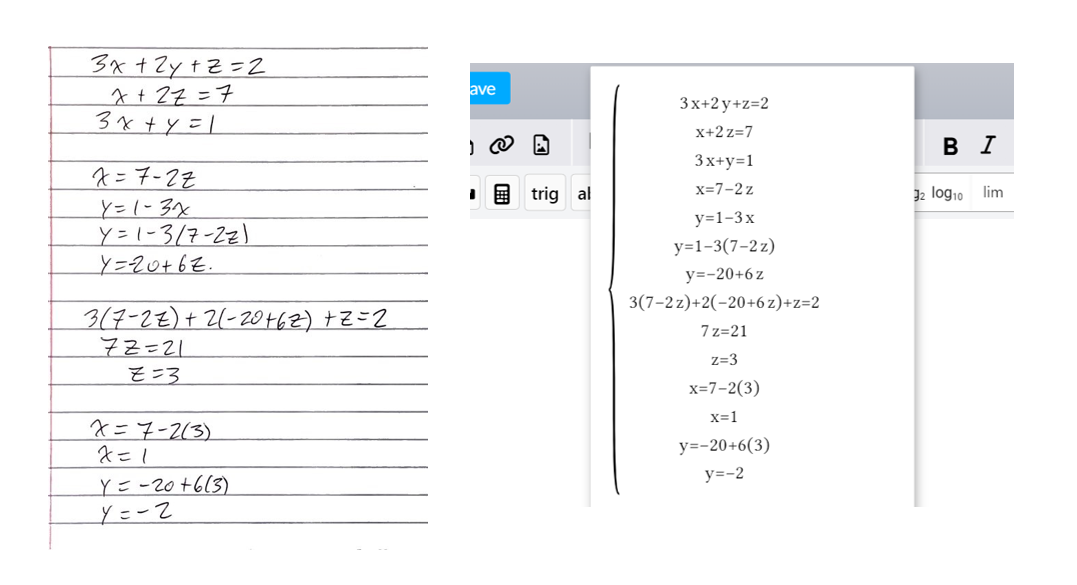 3x + 2y + z = 2
x + 2z = 7
3x + y = 1
x = 7-2z
y = 1-3x
y = 1-3(7-2z)
y=-20+6z.
3(7-2z) + 2(-20+6z) + z=2
7z=21
z=3
x = 7-2(3)
x = 1
y = -20+6(3)
y = -2
ave
3x+2y+z=2
x+2z=7
3x+y=1
x=7−2z
y=1−3x
y=1−3(7−2z)
y=−20+6z
3(7−2z)+2(−20+6z)+z=2
7z=21
z=3
x=7−2(3)
x=1
y=−20+6(3)
y=−2
B I
trig
log₁₀ lim